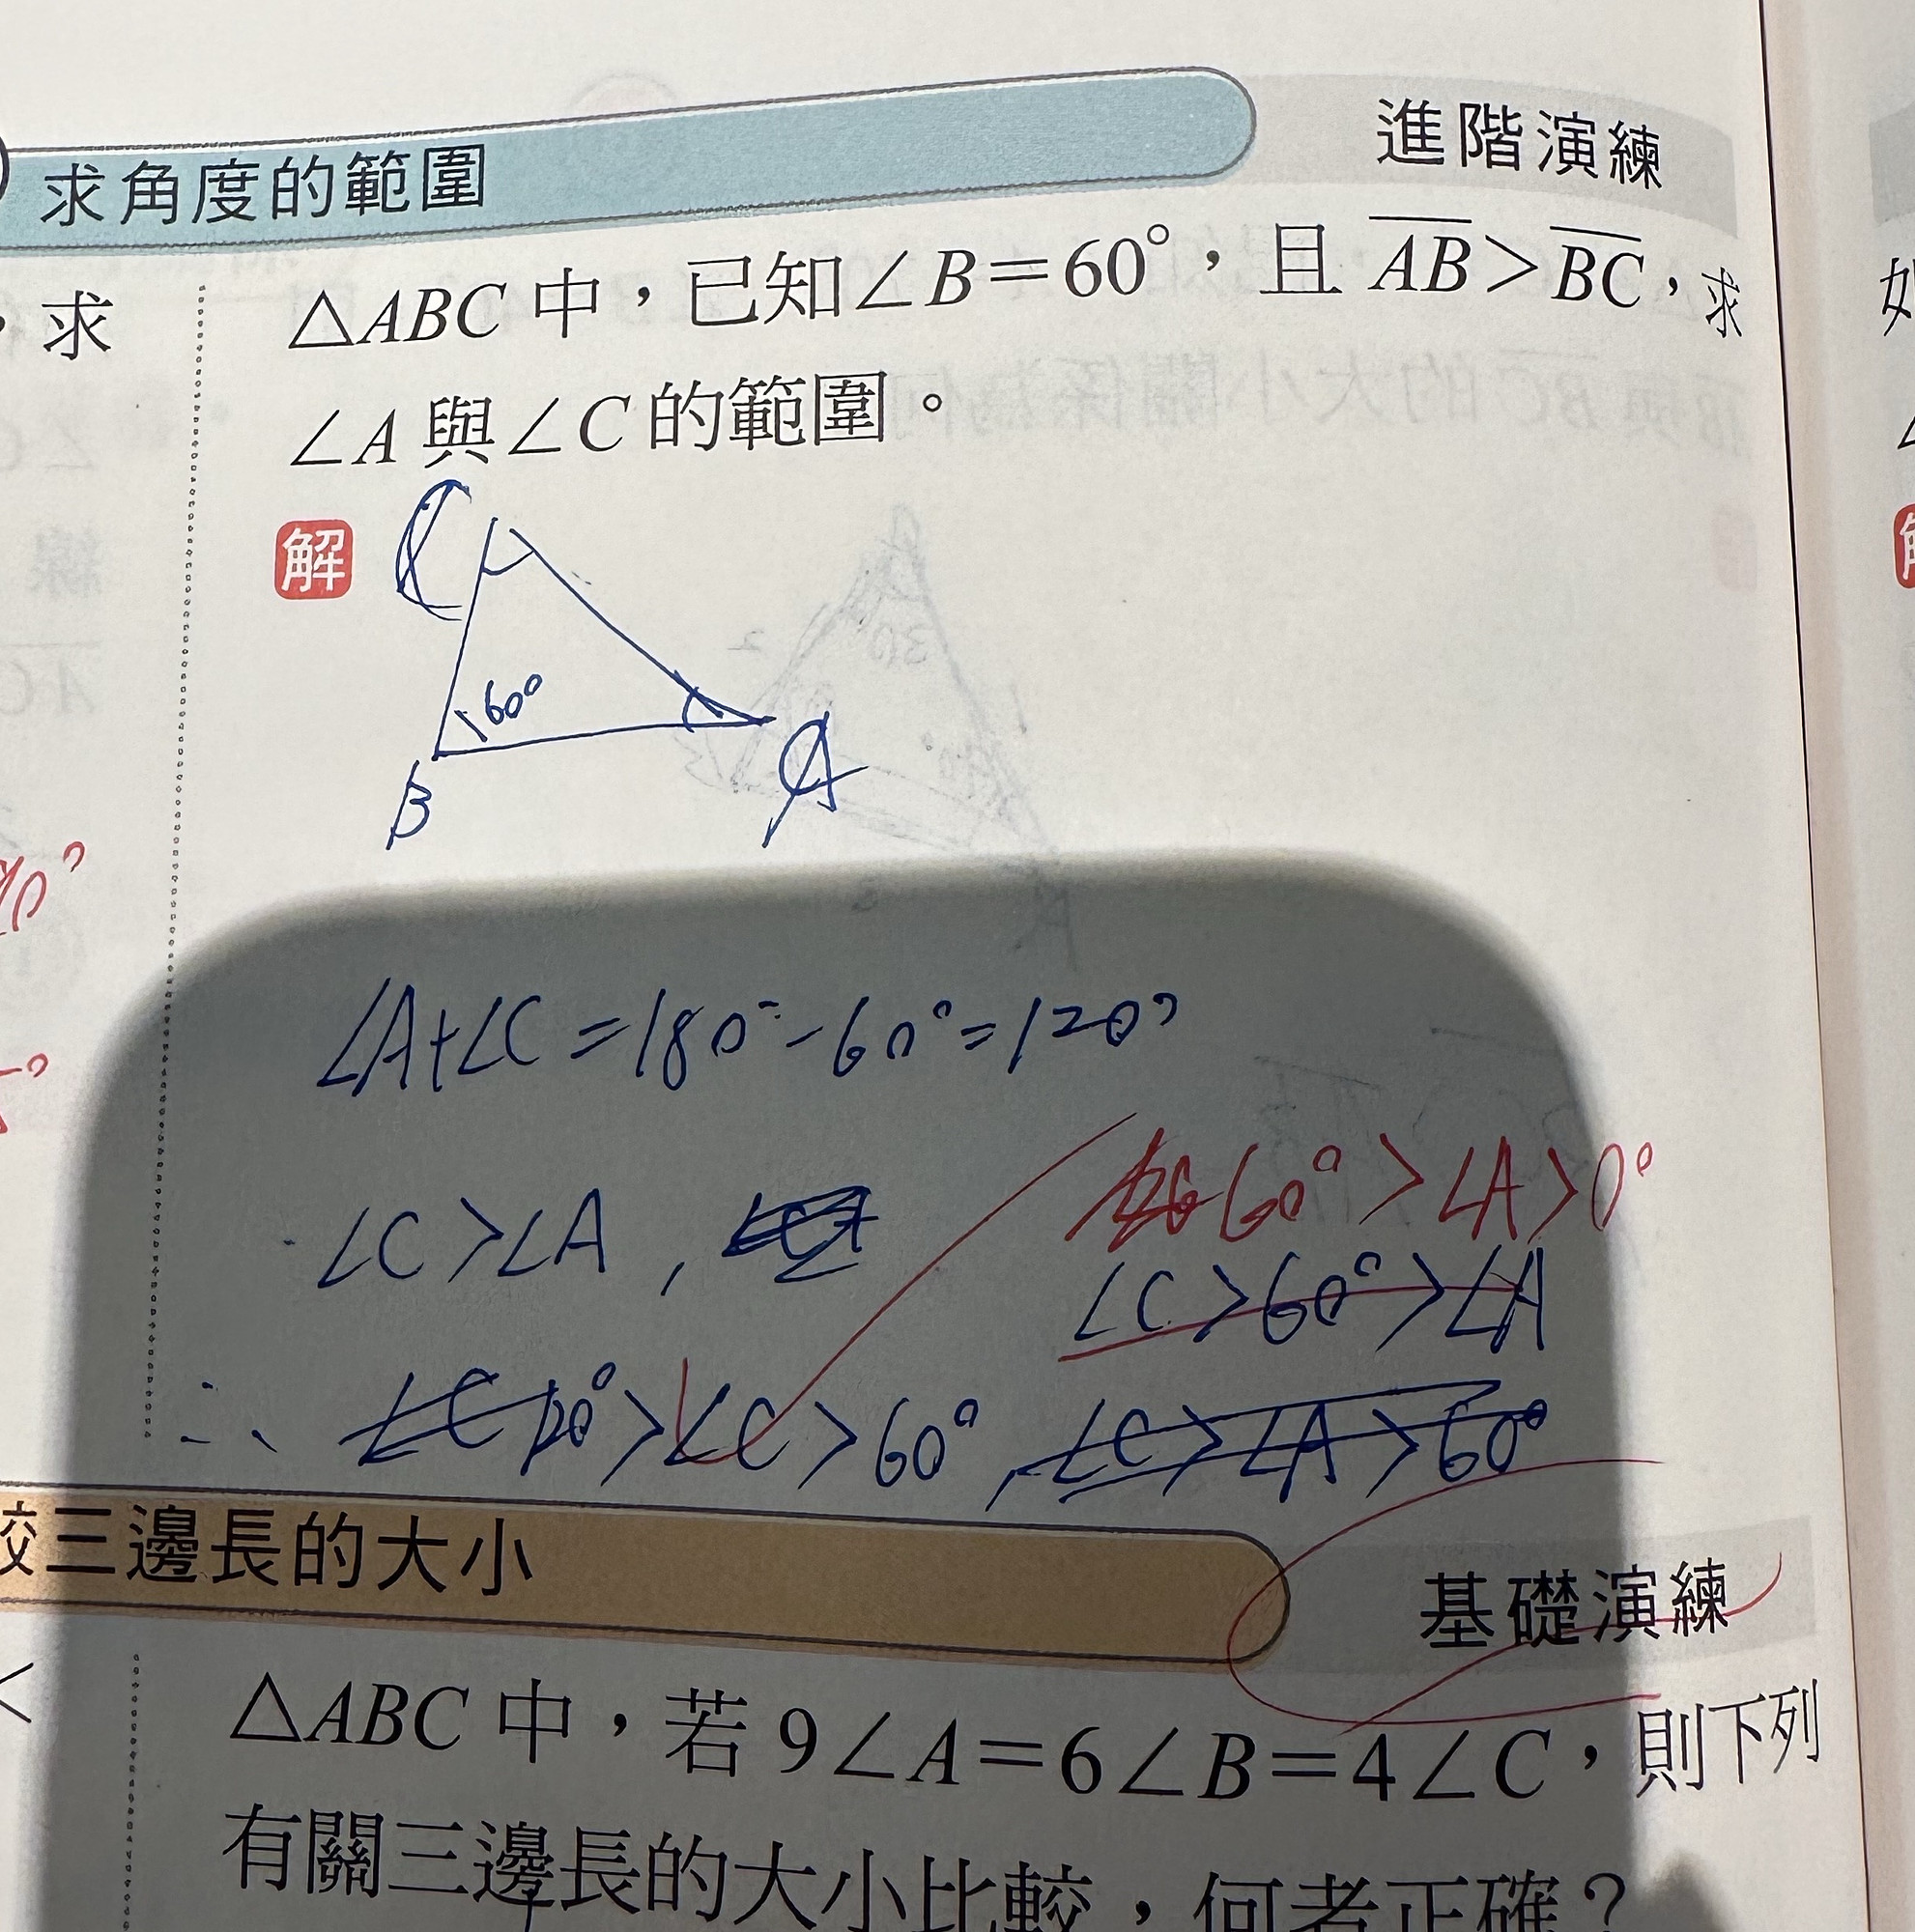 求角度的範圍
進階演練
，求
△ABC 中，已知∠B＝60°，且 AB＞BC，求
∠A 與∠C 的範圍。
解
C
60°
B
A
∠A+∠C=180°-60°=120°
60°>∠A>0°
∠C>∠A,
∠C>60°>∠A
∴ ∠C 120°>∠C>60°, ∠C>∠A>60°
較三邊長的大小
基礎演練
<
△ABC 中，若 9∠A＝6∠B＝4∠C，則下列
有關三邊長的大小比較，何者正確？